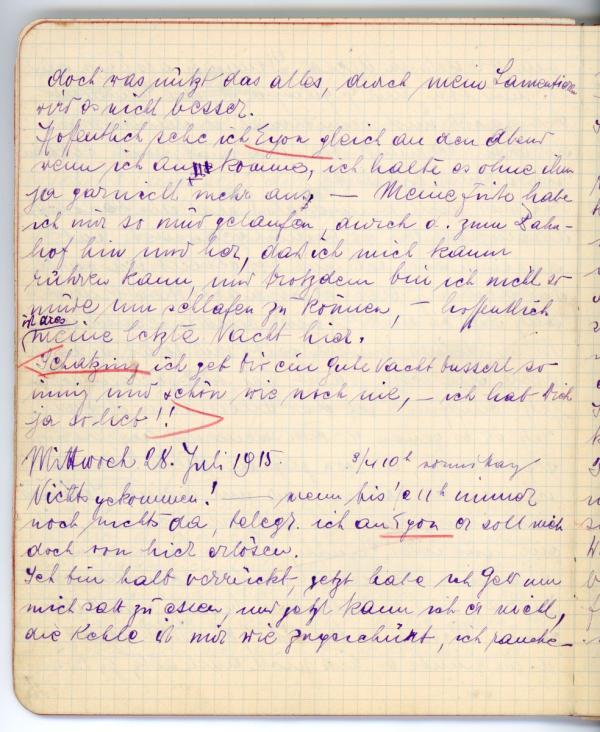 doch was nützt das alles, durch mein Lamentieren
wird es nicht besser.
Hoffentlich sehe ich Egon gleich an den Abend
wenn ich ankomme, ich halte es ohne ihm
ja gar nicht mehr aus. — Meine Füße habe
ich mir so müd gelaufen, durch d. zum Bahn-
hof hin und her, daß ich mich kaum
rühren kann, und trotzdem bin ich nicht so
müde um schlafen zu können, — hoffentlich
ist dies
meine letzte Nacht hier.
Schatzing ich geb Dir ein gute Nacht busserl so
innig und schön wie noch nie, — ich hab Dich
ja so lieb!!
Mittwoch 28. Juli 1915. 3/4 10h vormittag
Nichts gekommen! — wenn bis 11h immer
noch nichts da, telegr. ich an Egon er soll mich
doch von hier erlösen.
Ich bin halb verrückt, jetzt habe ich Geld um
mich satt zu essen, und jetzt kann ich es nicht,
die Kehle ist mir wie zugeschnürt, ich rauche